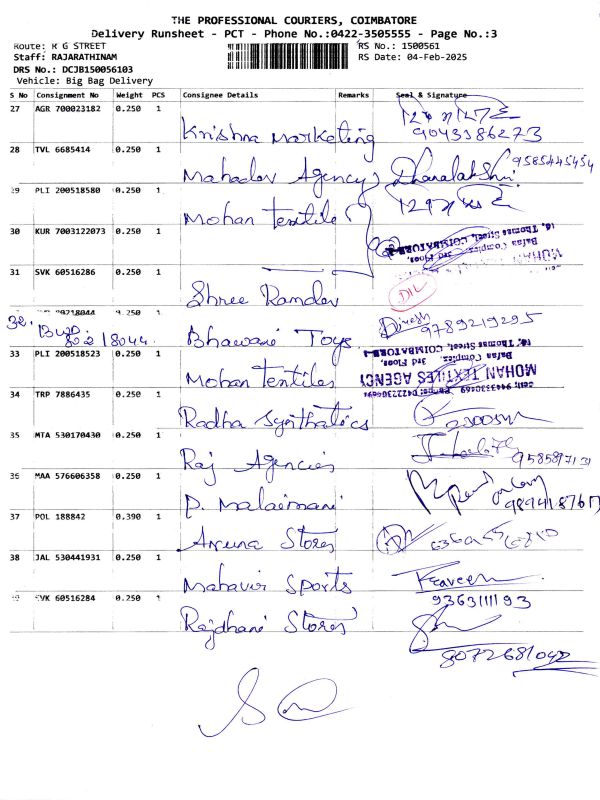 THE PROFESSIONAL COURIERS, COIMBATORE
Delivery Runsheet - PCT - Phone No.:0422-3505555 - Page No.:3
Route: R G STREET
RS No.: 1500561
Staff: RAJARATHINAM
RS Date: 04-Feb-2025
DRS No.: DCJB150056103
Vehicle: Big Bag Delivery
S No Consignment No Weight PCS Consignee Details Remarks Seal & Signature
27 AGR 700023182 0.250 1
Krishna Marketing 9043386273
28 TVL 6685414 0.250 1
Mahadev Agency Dhanalakshmi 9585445454
29 PLI 200518580 0.250 1
Mohan Textiles
30 KUR 7003122073 0.250 1
16, Thomas Street, COIMBATORE-1
Bafna Complex, 3rd Floor,
MOHAN
31 SVK 60516286 0.250 1
Shree Ramdev
32. 80218044 0.250 1
Bhawani Toys Dinesh 9789219295
33 PLI 200518523 0.250 1
16, Thomas Street, COIMBATORE-1
Bafna Complex, 3rd Floor,
MOHAN TEXTILES AGENCY
Mohan Textiles
34 TRP 7886435 0.250 1
Radha Synthatics
35 MTA 530170430 0.250 1
Raj Agencies
36 MAA 576606358 0.250 1
P. Malaimani
37 POL 188842 0.390 1
Aruna Stores
38 JAL 530441931 0.250 1
Mahavir Sports Praveen
9363111193
39 SVK 60516284 0.250 1
Rajdhani Stores
8072681042